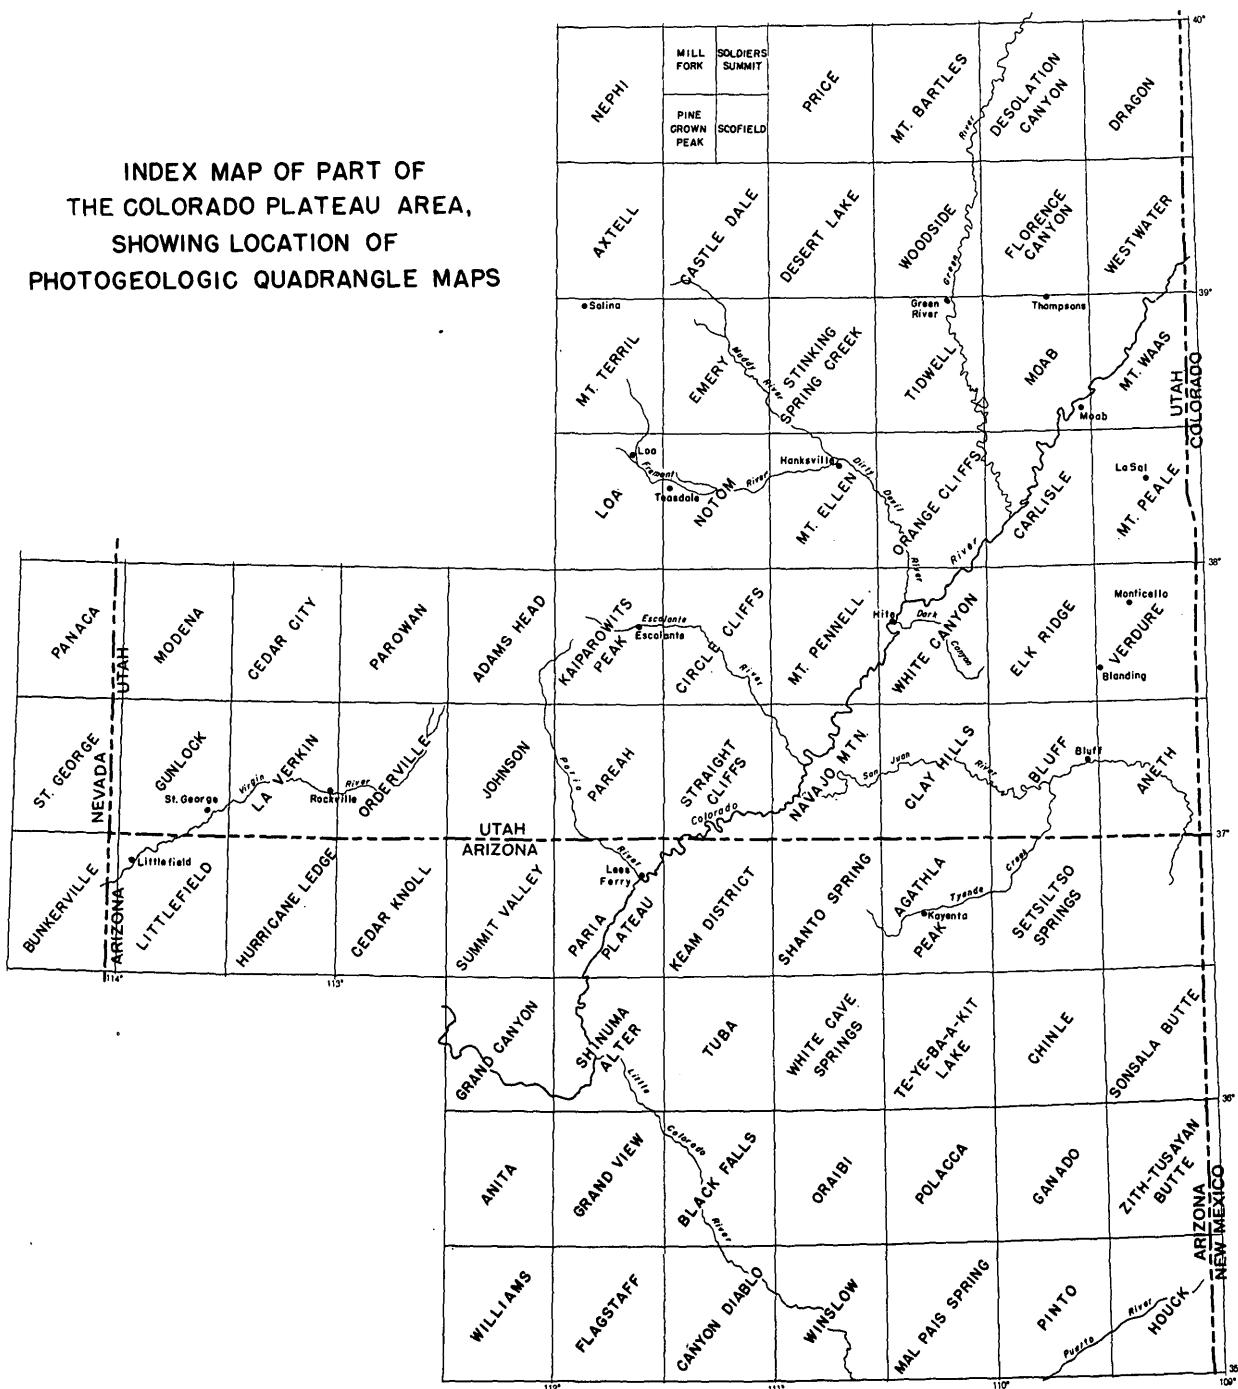 INDEX MAP OF PART OF
THE COLORADO PLATEAU AREA,
SHOWING LOCATION OF
PHOTOGEOLOGIC QUADRANGLE MAPS
40°
NEPHI
MILL
FORK
SOLDIERS
SUMMIT
PINE
GROWN
PEAK
SCOFIELD
PRICE
MT. BARTLES
River
DESOLATION
CANYON
DRAGON
AXTELL
CASTLE DALE
DESERT LAKE
WOODSIDE
Green
FLORENCE
CANYON
WESTWATER
39°
Salina
Green
River
Thompsons
MT. TERRIL
EMERY
Muddy
River
STINKING
SPRING CREEK
TIDWELL
MOAB
Moab
MT. WAAS
UTAH
COLORADO
Loa
LOA
Fremont
Teasdale
NOTOM
River
Hanksville
MT. ELLEN
Dirty
Devil
River
ORANGE CLIFFS
River
CARLISLE
LaSal
MT. PEALE
38°
PANACA
UTAH
MODENA
CEDAR CITY
PAROWAN
ADAMS HEAD
KAIPAROWITS
PEAK
Escalante
Escalante
CIRCLE CLIFFS
River
MT. PENNELL
Hite
Dark
Canyon
WHITE CANYON
ELK RIDGE
Monticello
VERDURE
Blanding
ST. GEORGE
NEVADA
GUNLOCK
St. George
Virgin
LA VERKIN
River
Rockville
ORDERVILLE
JOHNSON
Paria
PAREAH
STRAIGHT
CLIFFS
Colorado
NAVAJO MTN.
San Juan
River
CLAY HILLS
BLUFF
Bluff
ANETH
UTAH
ARIZONA
37°
BUNKERVILLE
ARIZONA
Littlefield
LITTLEFIELD
HURRICANE LEDGE
CEDAR KNOLL
SUMMIT VALLEY
River
Lees
Ferry
PARIA
PLATEAU
KEAM DISTRICT
SHANTO SPRING
AGATHLA
PEAK
Kayenta
Tyende
Creek
SETSILTSO
SPRINGS
114°
113°
GRAND CANYON
SHINUMA
ALTER
Little
Colorado
River
TUBA
WHITE CAVE
SPRINGS
TE-YE-BA-A-KIT
LAKE
CHINLE
SONSALA BUTTE
36°
ANITA
GRAND VIEW
BLACK FALLS
ORAIBI
POLACCA
GANADO
ZITH-TUSAYAN
BUTTE
ARIZONA
NEW MEXICO
WILLIAMS
FLAGSTAFF
CANYON DIABLO
WINSLOW
MAL PAIS SPRING
PINTO
Puerto
River
HOUCK
112°
111°
110°
109°
35